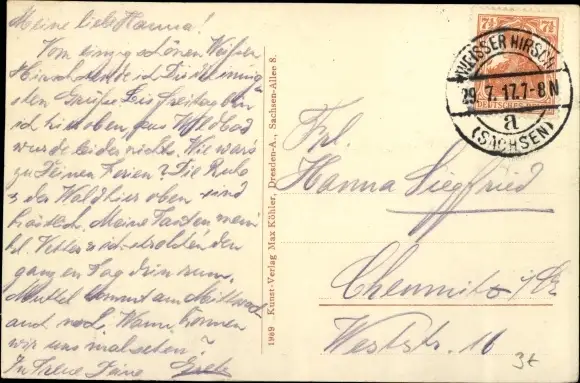 Meine liebe Hanna!
Vom einzig schönen Weißen
Hirsch sende ich Dir die innig
sten Grüße. Bis Freitag bin
ich hier oben, aus Wildbad
wurde leider nichts. Wie war's
zu Deinen Ferien? Die Ruhe
u. der Wald hier oben sind
köstlich. Meine Tanten mein
kl. Vetter u. ich den
ganzen Tag drin rum.
Muttel kommt am Mittwoch
auch noch. Wann können
wir uns mal sehen?
In Treue Deine Grete
1989 Kunst-Verlag Max Köhler, Dresden-A., Sachsen-Allee 8.
7½ 7½
DEUTSCHES
WEISSER HIRSCH
29.7.17.7-8N
a
(SACHSEN)
Frl.
Hanna Siegfried
Chemnitz i/Sa
Weststr. 16
3t